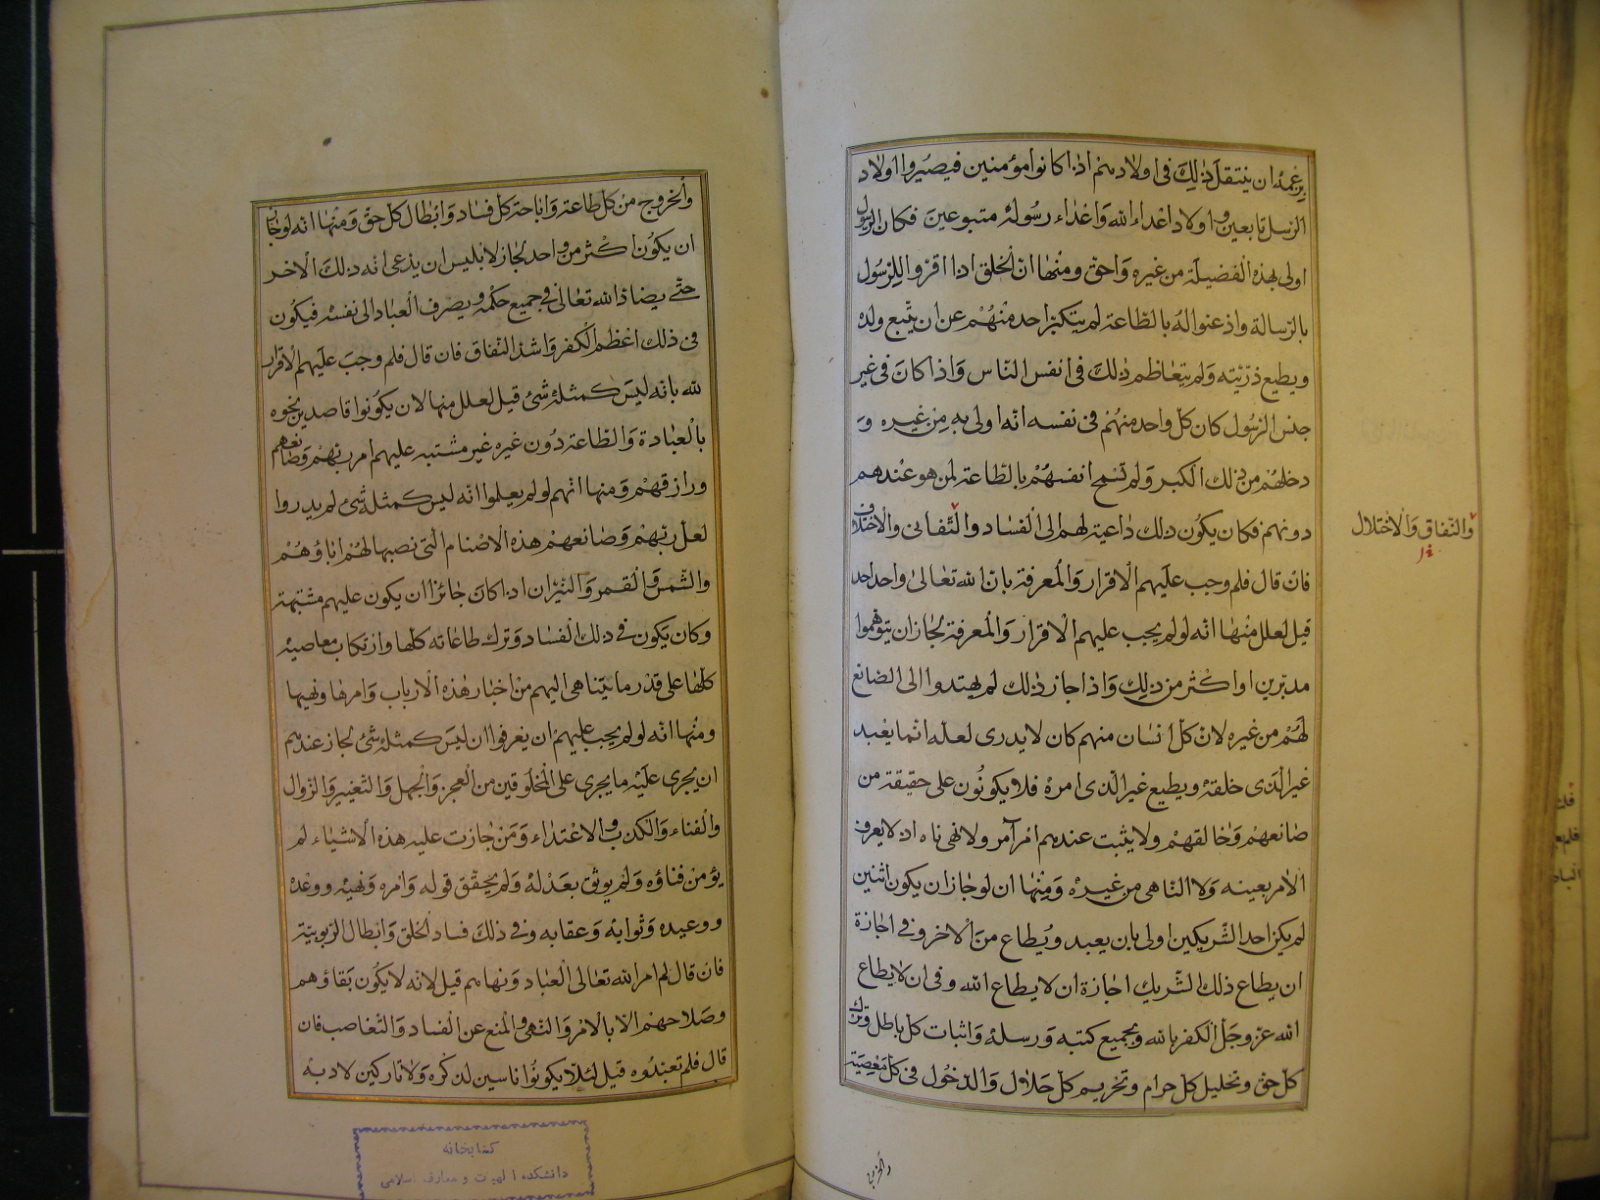 بزعمه ان ينتقل ذلك فى اولادهم اذا كانوا مؤمنين فيصيروا اولاد
الرسل تابعين و اولاد اعداء الله و اعداء رسوله متبوعين فكان الرسول
اولى بهذه الفضيلة من غيره و احق و منها ان الخلق اذا اقروا للرسول
بالرسالة و اذعنوا له بالطاعة لم يتكبر احد منهم عن ان يتبع ولده
و يطيع ذريته و لم يتعاظم ذلك فى انفس الناس و اذا كان فى غير
جنس الرسول كان كل واحد منهم فى نفسه انه اولى به من غيره و
دخلهم من ذلك الكبر و لم تسمح انفسهم بالطاعة لمن هو عندهم
دونهم فكان يكون ذلك داعية لهم الى الفساد و التفانى و الاختلاف
والنفاق والاختلال
فان قال فلم وجب عليهم الاقرار و المعرفة بان الله تعالى واحد احد
قيل لعلل منها انه لو لم يجب عليهم الاقرار و المعرفة لجاز ان يتوهموا
مدبرين او اكثر من ذلك و اذا جاز ذلك لم يهتدوا الى الصانع
لهم من غيره لان كل انسان منهم كان لا يدرى لعله انما يعبد
غير الذى خلقه و يطيع غير الذى امره فلا يكونون على حقيقة من
صانعهم و خالقهم و لا يثبت عندهم امر آمر و لا نهى ناه اذ لا يعرف
الامر بعينه و لا الناهى من غيره و منها ان لو جاز ان يكون اثنين
لم يكن احد الشريكين اولى بان يعبد و يطاع من الاخر و فى اجازة
ان يطاع ذلك الشريك اجازة ان لا يطاع الله و فى ان لا يطاع
الله عز و جل الكفر بالله و بجميع كتبه و رسله و اثبات كل باطل و ترك
كل حق و تحليل كل حرام و تحريم كل حلال و الدخول فى كل معصية
والخروج
والخروج من كل طاعة و اباحة كل فساد و ابطال كل حق و منها انه لو جاز
ان يكون اكثر من واحد لجاز لابليس ان يدعى انه ذلك الاخر
حتى يضاد الله تعالى فى جميع حكمه و يصرف العباد الى نفسه فيكون
فى ذلك اعظم الكفر و اشد النفاق فان قال فلم وجب عليهم الاقرار
لله بانه ليس كمثله شئ قيل لعلل منها لان يكونوا قاصدين نحوه
بالعبادة و الطاعة دون غيره غير مشتبه عليهم امر ربهم و صانعهم
و رازقهم و منها انهم لو لم يعلموا انه ليس كمثله شئ لم يدروا
لعل ربهم و صانعهم هذه الاصنام التى نصبها لهم اباؤهم
و الشمس و القمر و النيران اذا كان جائزا ان يكون عليهم مشتبهة
و كان يكون فى ذلك الفساد و ترك طاعاته كلها و ارتكاب معاصيه
كلها على قدر ما يتناهى اليهم من اخبار هذه الارباب و امرها و نهيها
و منها انه لو لم يجب عليهم ان يعرفوا ان ليس كمثله شئ لجاز عندهم
ان يجرى عليه ما يجرى على المخلوقين من العجز و الجهل و التغيير و الزوال
و الفناء و الكذب و الاعتداء و من جازت عليه هذه الاشياء لم
يؤمن فناؤه و لم يوثق بعدله و لم يحقق قوله و امره و نهيه و وعده
و وعيده و ثوابه و عقابه و فى ذلك فساد الخلق و ابطال الربوبية
فان قال لم امر الله تعالى العباد و نهاهم قيل لانه لا يكون بقاؤهم
و صلاحهم الا بالامر و النهى و المنع عن الفساد و التغاصب فان
قال فلم تعبدوه قيل لئلا يكونوا ناسين لذكره و لا تاركين لادبه
كتابخانه
دانشكده الهيات و معارف اسلامى